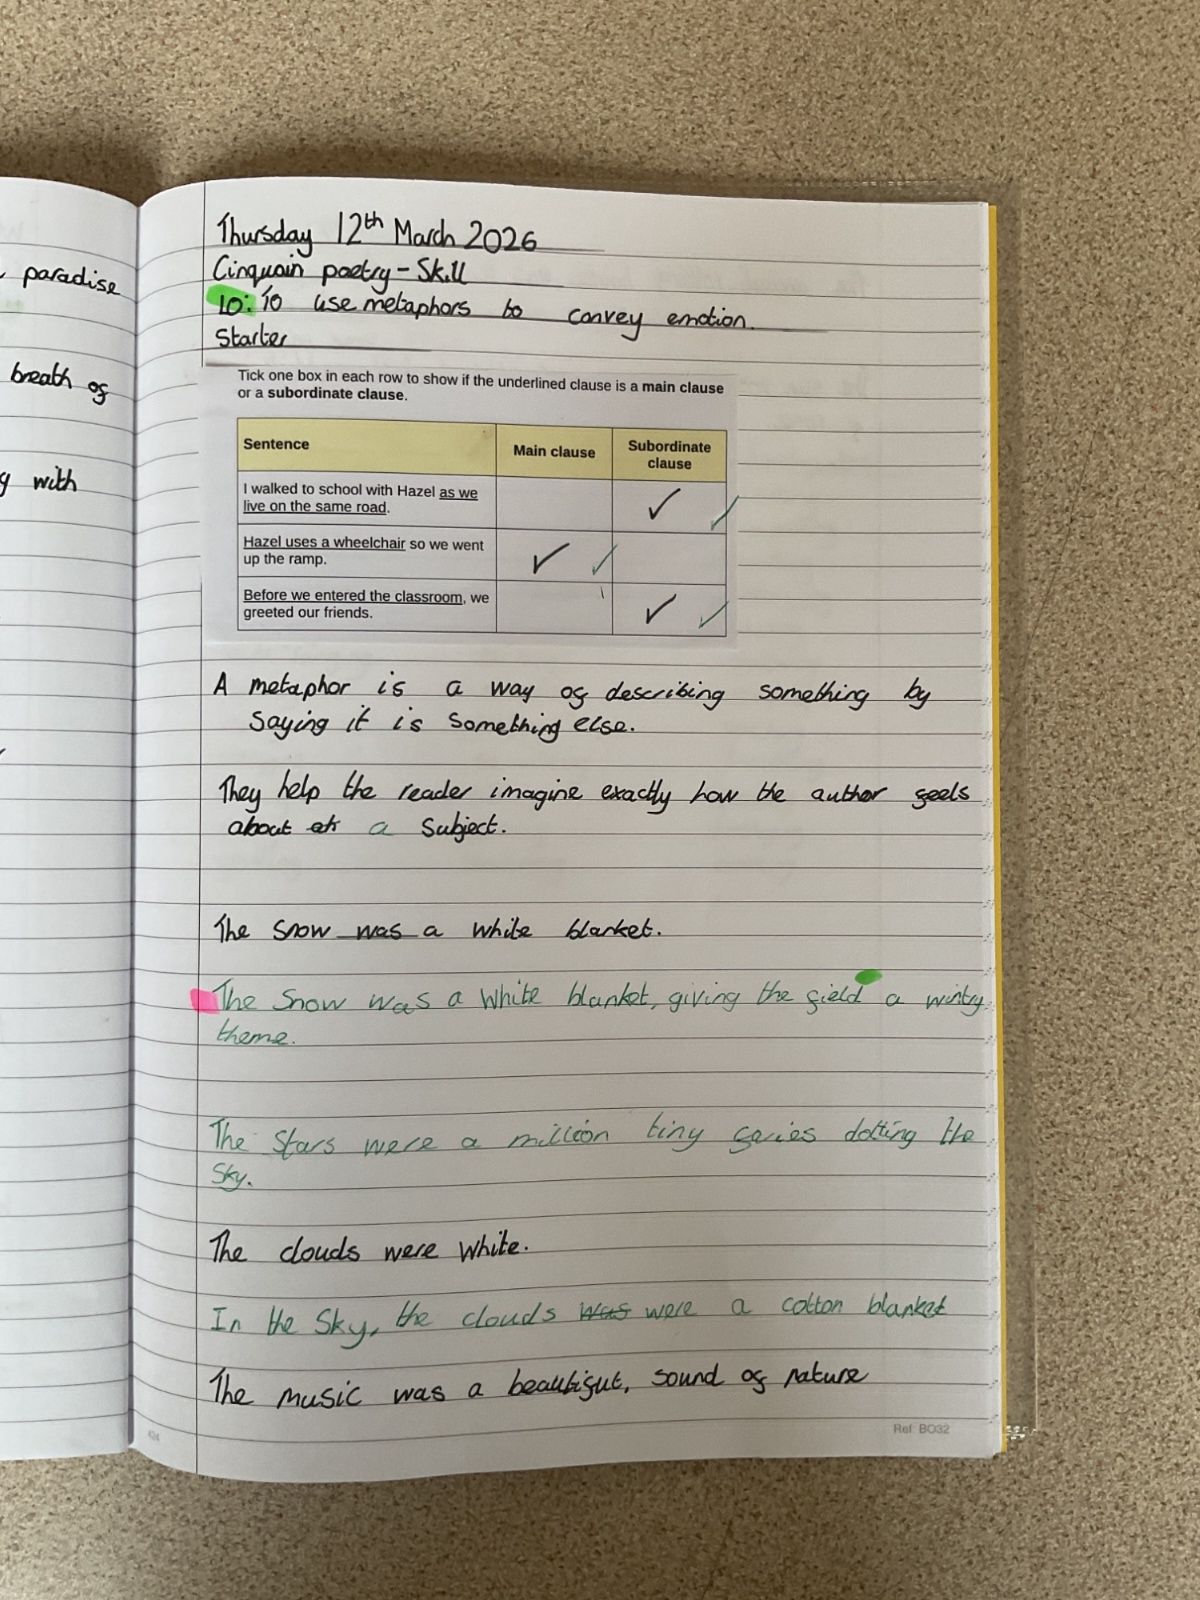 paradise
breath of
with
Thursday 12th March 2026
Cinquain poetry - Skill
LO: To use metaphors to convey emotion.
Starter
Tick one box in each row to show if the underlined clause is a main clause
or a subordinate clause.
Sentence Main clause Subordinate
clause
I walked to school with Hazel as we
live on the same road.
Hazel uses a wheelchair so we went
up the ramp.
Before we entered the classroom, we
greeted our friends.
A metaphor is a way of describing something by
saying it is something else.
They help the reader imagine exactly how the author feels
about a subject.
The snow was a white blanket.
The snow was a white blanket, giving the field a wintry
theme.
The stars were a million tiny faries dotting the
sky.
The clouds were white.
In the sky, the clouds was were a cotton blanket
The music was a beautifut, sound of nature
424
Ref: BO32